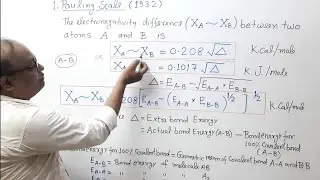 1. Pauling Scale (1932)
The electronegativity difference (XA ~ XB) between two
atoms A and B is
A-B or XA ~ XB = 0.208 √Δ K.Cal/mole
XA XB = 0.1017 √Δ K.J./mole
Δ = EA-B - √EA-A × EB-B
XA ~ XB = 0.208 [EA-B - (EA-A × EB-B)^1/2]^1/2 K.Cal/mole
Δ = Extra bond Energy
= Actual bond Energy (A-B) - Bond energy for
100% Covalent
(A-B)
energy for 100% Covalent bond = Geometric mean of Covalent bond A-A and B-B
EA-B = Bond energy of molecule AB
EA-A = " " " A2